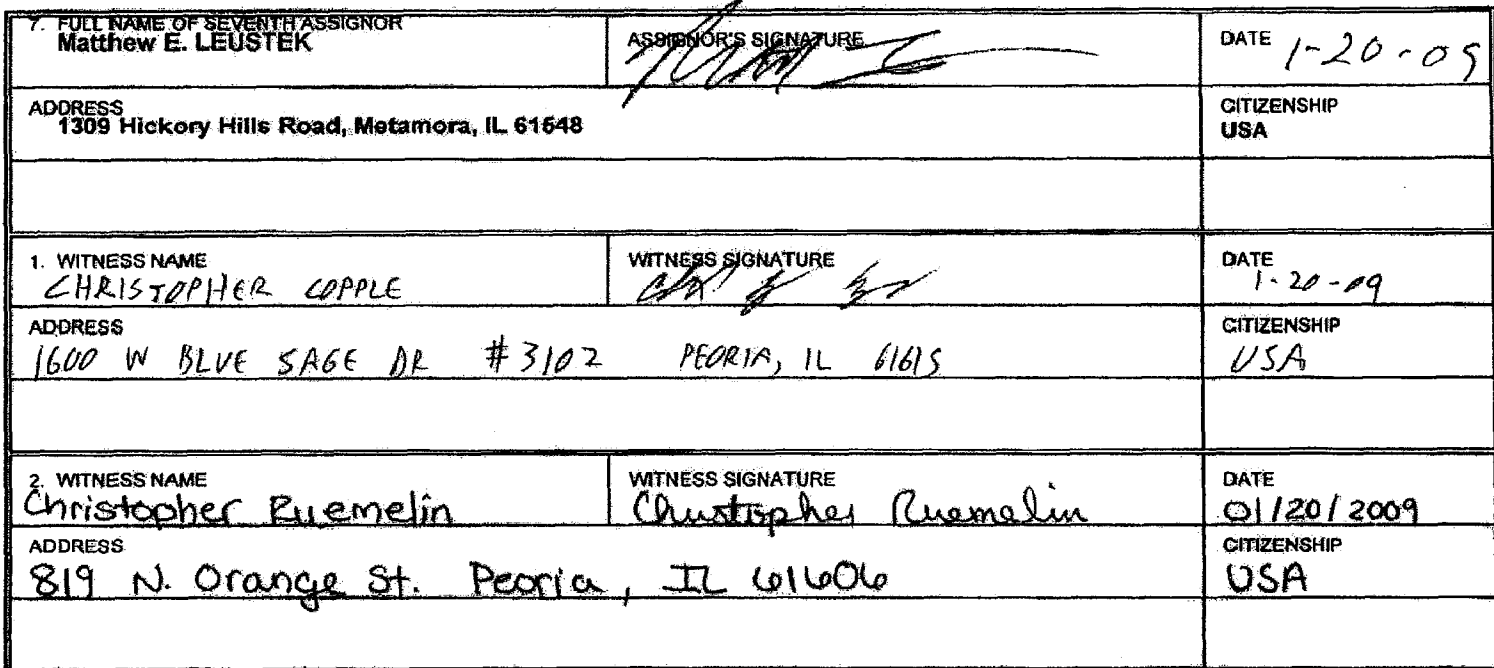 7. FULL NAME OF SEVENTH ASSIGNOR
Matthew E. LEUSTEK
ASSIGNOR'S SIGNATURE
DATE 1-20-09
ADDRESS
1309 Hickory Hills Road, Metamora, IL 61548
CITIZENSHIP
USA
1. WITNESS NAME
CHRISTOPHER COPPLE
WITNESS SIGNATURE
DATE
1-20-09
ADDRESS
1600 W BLUE SAGE DR #3102 PEORIA, IL 61615
CITIZENSHIP
USA
2. WITNESS NAME
Christopher Ruemelin
WITNESS SIGNATURE
Christopher Ruemelin
DATE
01/20/2009
ADDRESS
819 N. Orange St. Peoria, IL 61606
CITIZENSHIP
USA